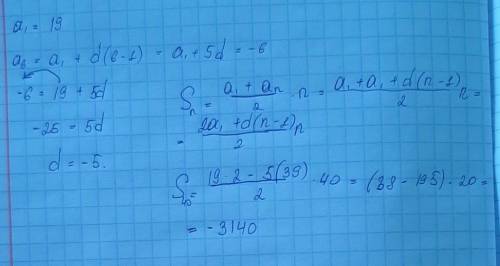 a₁ = 19
a₆ = a₁ + d(6-1) = a₁ + 5d = -6
-6 = 19 + 5d
-25 = 5d
d = -5.
Sₙ = (a₁ + aₙ)/2 · n = (a₁ + a₁ + d(n-1))/2 n =
= (2a₁ + d(n-1))/2 n
S₄₀ = (19·2 - 5(39))/2 · 40 = (38 - 195) · 20 =
= -3140